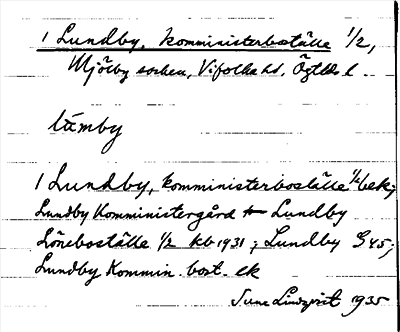 1 Lundby, komministerboställe 1/2,
Mjölby socken, Vifolka hd, Ögtlds l.
lúmby
1 Lundby, komministerboställe 1/2 bek;
Lundby Komministergård Lundby
Löneboställe 1/2 kb 1931; Lundby G 45;
Lundby Kommin. bost. ek
Sune Lindqvist 1935